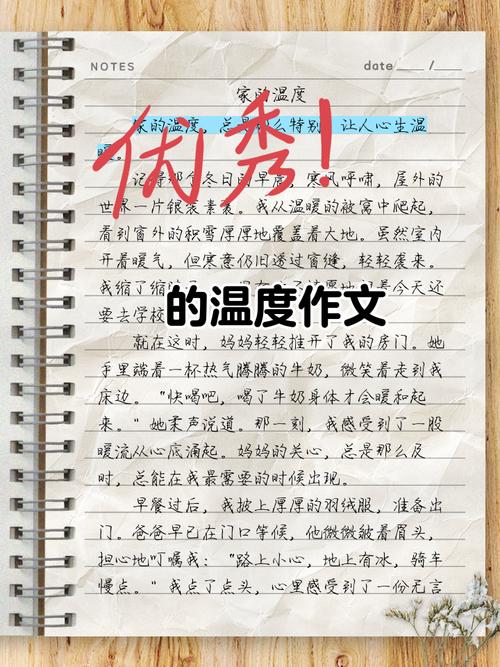 NOTES
date____/__
家的温度
家的温度,总是那么特别,让人心生温
暖。
优秀!
记得那个冬日的早晨,寒风呼啸,屋外的
世界一片银装素裹。我从温暖的被窝中爬起,
看到窗外的积雪厚厚地覆盖着大地。虽然室内
开着暖气,但寒意仍旧透过窗缝,轻轻袭来。
我缩了缩 着今天还
要去学校
的温度作文
就在这时,妈妈轻轻推开了我的房门。她
手里端着一杯热气腾腾的牛奶,微笑着走到我
床边。"快喝吧,喝了牛奶身体才会暖和起
来。"她柔声说道。那一刻,我感受到了一股
暖流从心底涌起。妈妈的关心,总是那么及
时,总能在我最需要的时候出现。
早餐过后,我披上厚厚的羽绒服,准备出
门。爸爸早已在门口等候,他微微皱着眉头,
担心地叮嘱我:"路上小心,地上有冰,骑车
慢点。"我点了点头,心里感受到了一份无言